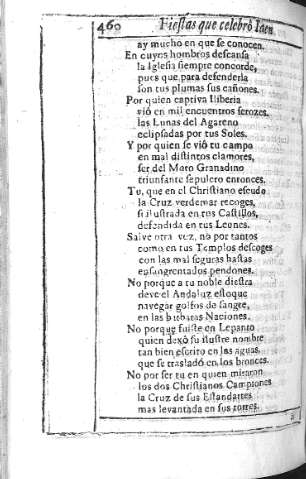 460 Fiestas que celebrò Iaen
ay mucho en que se conocen.
En cuyos hombros descansa
la Iglesia siempre concorde,
pues que para defenderla
son tus plumas sus cañones.
Por quien captiva Iliberia
viò en mil encuentros ferozes
las Lunas del Agareno
eclipsadas por tus Soles.
Y por quien se viò tu campo
en mal distintos clamores,
ser del Moro Granadino
triunfante sepulcro entonces.
Tu, que en el Christiano escudo
la Cruz verdemar recoges,
si ilustrada en tus Castillos,
defendida en tus Leones.
Salve otra vez, no por tantos
como en tus Templos descoges
con las mal seguras hastas
ensangrentados pendones.
No porque a tu noble diestra
deve el Andaluz estoque
navegar golfos de sangre,
en las barbaras Naciones.
No porque fuiste en Lepanto
quien dexò su ilustre nombre
tan bien escrito en las aguas,
que se trasladò en los bronces.
No por ser tu en quien miraron
los dos Christianos Campiones
la Cruz de sus Estandartes
mas levantada en sus torres.